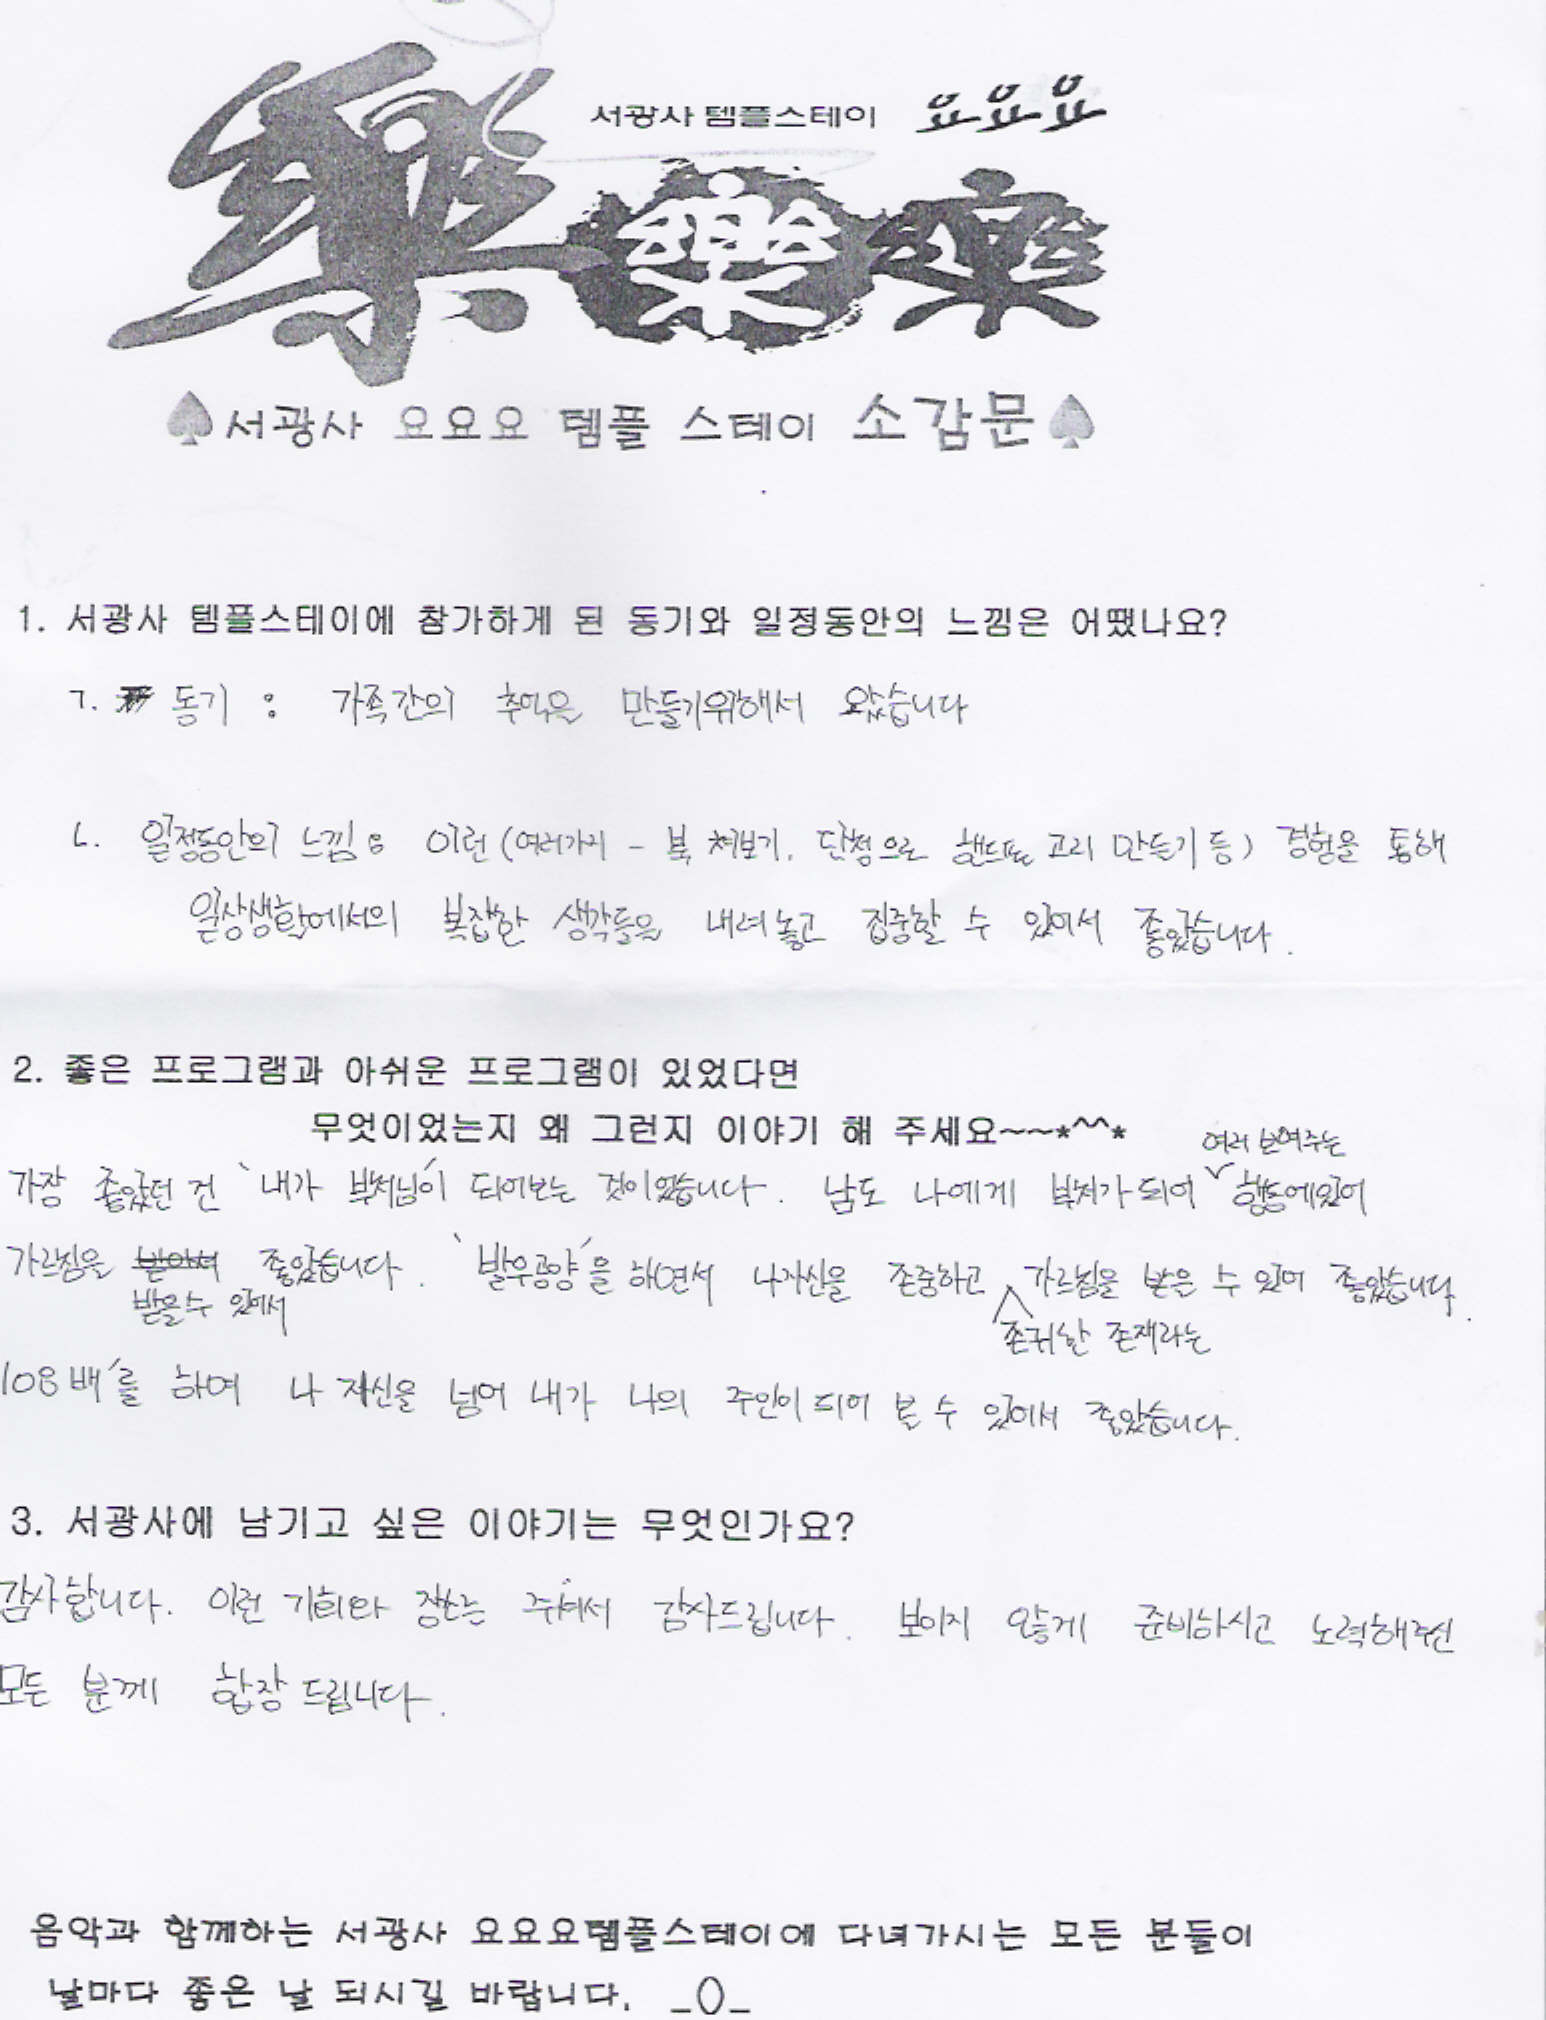 서광사 템플스테이 요요요
樂 樂 樂
서광사 요요요 템플 스테이 소감문
1. 서광사 템플스테이에 참가하게 된 동기와 일정동안의 느낌은 어땠나요?
ㄱ. 동기 : 가족간의 추억을 만들기위해서 왔습니다
ㄴ. 일정동안의 느낌 : 이런 (여러가지 - 북 쳐보기, 단청으로 핸드폰 고리 만들기 등) 경험을 통해
일상생활에서의 복잡한 생각들을 내려놓고 집중할 수 있어서 좋았습니다.
2. 좋은 프로그램과 아쉬운 프로그램이 있었다면
무엇이었는지 왜 그런지 이야기 해 주세요~~*^^*
여러 보여주는
가장 좋았던 건 '내가 부처님'이 되어보는 것이었습니다. 남도 나에게 부처가 되어 행동에있어
가르침을 받아서 좋았습니다. '발우공양'을 하면서 나자신을 존중하고 가르침을 받을 수 있어 좋았습니다.
받을수 있어서
존귀한 존재라는
108배'를 하며 나 자신을 넘어 내가 나의 주인이 되어 볼 수 있어서 좋았습니다.
3. 서광사에 남기고 싶은 이야기는 무엇인가요?
감사합니다. 이런 기회와 장소를 주셔서 감사드립니다. 보이지 않게 준비하시고 노력해주신
모든 분께 합장 드립니다.
음악과 함께하는 서광사 요요요템플스테이에 다녀가시는 모든 분들이
날마다 좋은 날 되시길 바랍니다. _()_